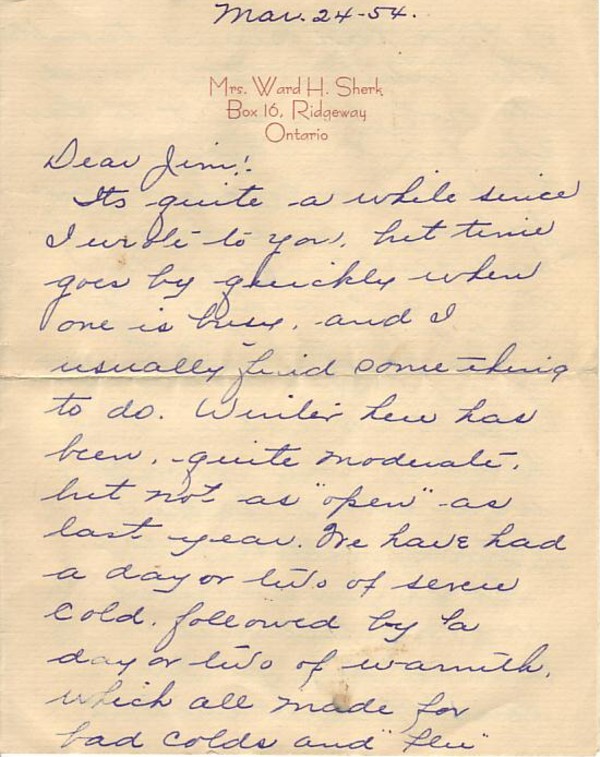 Mar. 24-54.
Mrs. Ward H. Sherk
Box 16, Ridgeway
Ontario
Dear Jim!
Its quite a while since
I wrote to you, but time
goes by quickly when
one is busy, and I
usually find something
to do. Winter here has
been, quite moderate,
but not as "open" as
last year. We have had
a day or two of severe
cold, followed by a
day or two of warmth,
which all made for
bad colds and "flu"